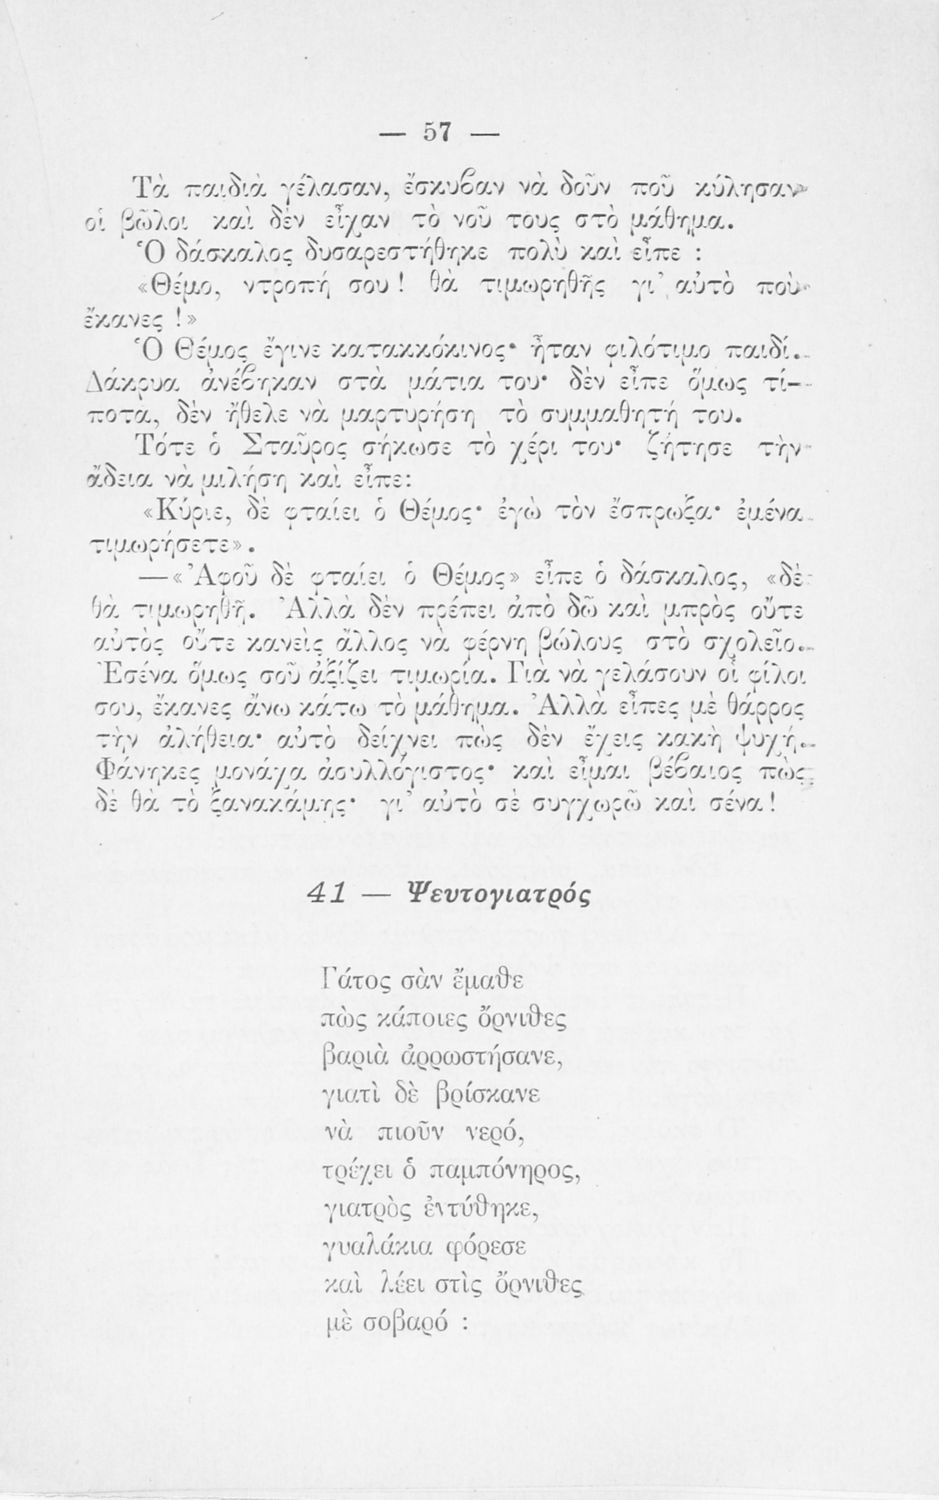 — 57 —
Τὰ παιδιὰ γέλασαν, ἔσκυβαν νὰ δοῦν ποῦ κύλησαν
οἱ βῶλοι καὶ δὲν εἶχαν τὸ νοῦ τους στὸ μάθημα.
Ὁ δάσκαλος δυσαρεστήθηκε πολὺ καὶ εἶπε :
«Θέμο, ντροπή σου ! θὰ τιμωρηθῆς γι’ αὐτὸ ποὺ
ἔκανες !»
Ὁ Θέμος ἔγινε κατακκόκινος· ἦταν φιλότιμο παιδί.
Δάκρυα ἀνέβηκαν στὰ μάτια του· δὲν εἶπε ὅμως τί-
ποτα, δὲν ἤθελε νὰ μαρτυρήση τὸ συμμαθητή του.
Τότε ὁ Σταῦρος σήκωσε τὸ χέρι του· ζήτησε τὴν
ἄδεια νὰ μιλήση καὶ εἶπε:
«Κύριε, δὲ φταίει ὁ Θέμος· ἐγὼ τὸν ἔσπρωξα· ἐμένα
τιμωρήσετε».
—«Ἀφοῦ δὲ φταίει ὁ Θέμος» εἶπε ὁ δάσκαλος, «δὲ
θὰ τιμωρηθῆ. Ἀλλὰ δὲν πρέπει ἀπὸ δῶ καὶ μπρὸς οὔτε
αὐτὸς οὔτε κανεὶς ἄλλος νὰ φέρνη βώλους στὸ σχολεῖο.
Ἐσένα ὅμως σοῦ ἀξίζει τιμωρία. Γιὰ νὰ γελάσουν οἱ φίλοι
σου, ἔκανες ἄνω κάτω τὸ μάθημα. Ἀλλὰ εἶπες μὲ θάρρος
τὴν ἀλήθεια· αὐτὸ δείχνει πὼς δὲν ἔχεις κακὴ ψυχή.
Φάνηκες μονάχα ἀσυλλόγιστος· καὶ εἶμαι βέβαιος πὼς
δὲ θὰ τὸ ξανακάμης· γι’ αὐτὸ σὲ συγχωρῶ καὶ σένα!
41 — Ψευτογιατρός
Γάτος σὰν ἔμαθε
πὼς κάποιες ὄρνιθες
βαριὰ ἀρρωστήσανε,
γιατὶ δὲ βρίσκανε
νὰ πιοῦν νερό,
τρέχει ὁ παμπόνηρος,
γιατρὸς ἐντύθηκε,
γυαλάκια φόρεσε
καὶ λέει στὶς ὄρνιθες
μὲ σοβαρό :